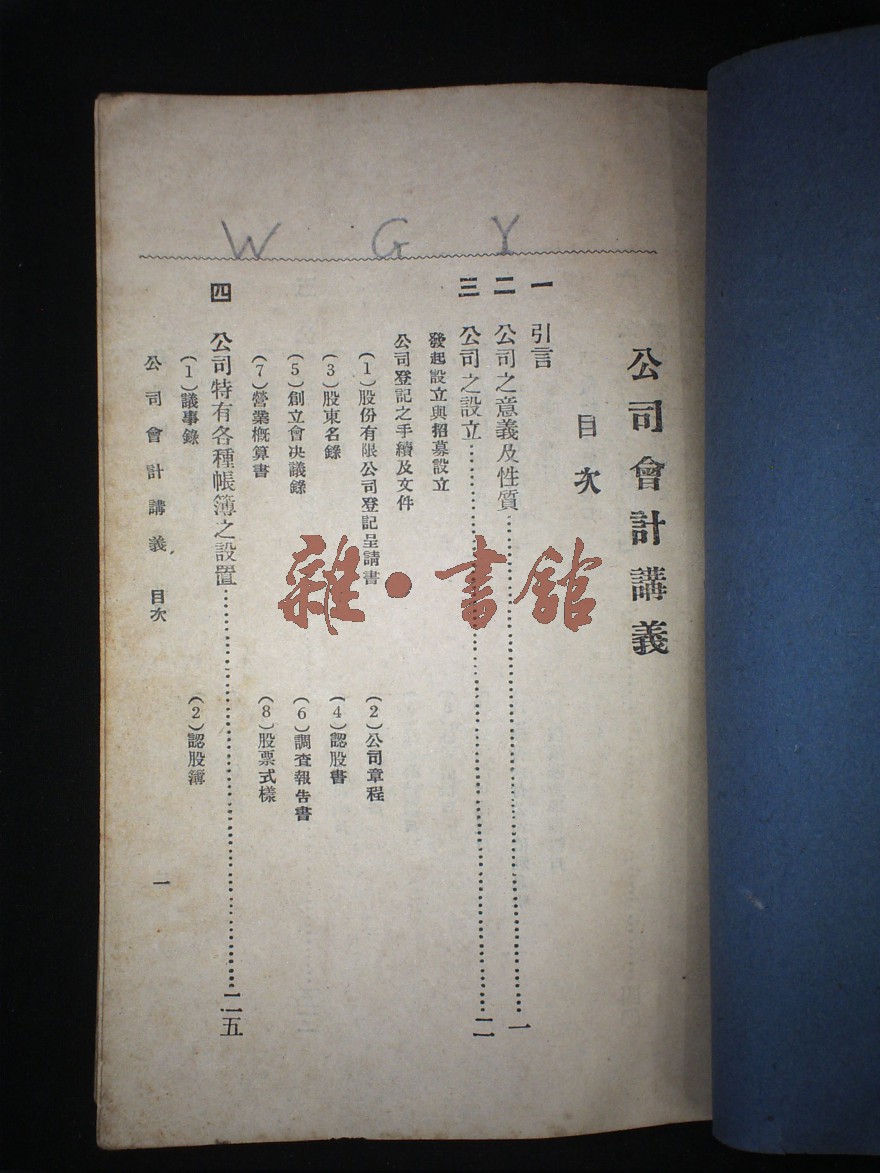 W G Y
公司會計講義
目次
一 引言
二 公司之意義及性質……一
三 公司之設立……二
發起設立與招募設立
公司登記之手續及文件
(1)股份有限公司登記呈請書 (2)公司章程
(3)股東名錄 (4)認股書
(5)創立會决議錄 (6)調查報告書
(7)營業概算書 (8)股票式樣
四 公司特有各種帳簿之設置……二五
(1)議事錄 (2)認股簿
公司會計講義 目次 一
雜·書館